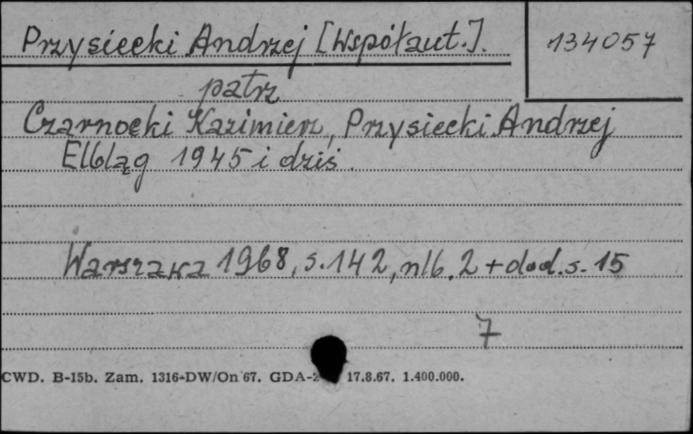 Przysiecki Andrzej [Współaut.].
134057
patrz
Czarnocki Kazimierz, Przysiecki Andrzej
Elbląg 1945 i dziś.
Warszawa 1968, s. 142, nlb. 2 + dod. s. 15
7
CWD. B-15b. Zam. 1316-DW/On 67. GDA- 17.8.67. 1.400.000.